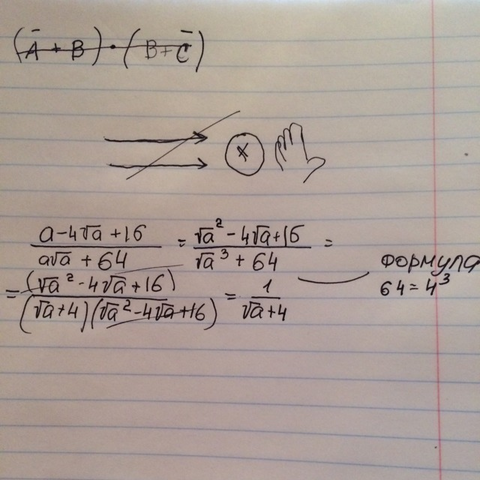 (Ā + B) · (B + C̄)
x
a-4√a+16 / a√a + 64 = √a² - 4√a+16 / √a³ + 64 =
= (√a² - 4√a + 16) / (√a+4)(√a² - 4√a + 16) = 1 / √a+4
формула
64 = 4³